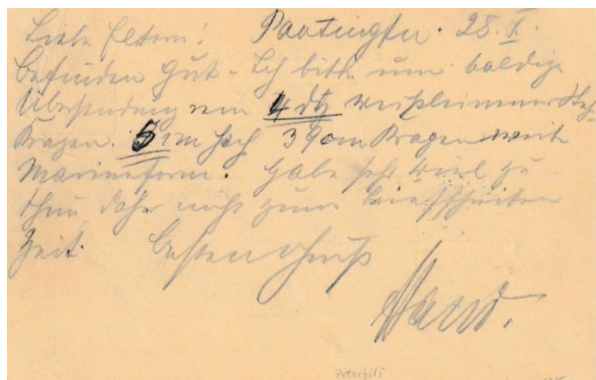 Liebe Eltern! Paotingfu. 28. X.
Befinden gut. Ich bitte um baldige
Übersendung von 4 dtz weißleinener Steh-
kragen. 5 cm hoch 39 cm Kragenweite
Marineform. Habe sehr viel zu
thun daher nicht zum Briefschreiben
Zeit. Besten Gruß
Hans.